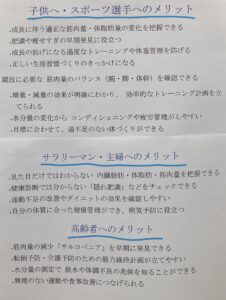 子供へ・スポーツ選手へのメリット
・成長に伴う適正な筋肉量・体脂肪量の変化を把握できる
・肥満や痩せすぎの早期発見に役立つ
・成長の妨げになる過度なトレーニングや体重管理を防げる
・正しい生活習慣づくりのきっかけになる
競技に必要な 筋肉量のバランス（腕・脚・体幹）を確認できる
・増量・減量の効果が明確にわかり、効率的なトレーニング計画を立てられる
・水分量の変化から コンディショニングや疲労管理がしやすい
・目標に合わせて、過不足のない体づくりができる
サラリーマン・主婦へのメリット
・見た目だけではわからない 内臓脂肪・体脂肪・筋肉量を把握できる
・健康診断では分からない「隠れ肥満」などをチェックできる
・運動不足の改善やダイエットの効果を確認しやすい
・自分の体質に合った健康管理ができ、病気予防に役立つ
高齢者へのメリット
・筋肉量の減少「サルコペニア」を早期に発見できる
・転倒予防・介護予防のための筋力維持計画が立てやすい
・水分量の測定で 脱水や体調不良の兆候を知ることができる
・無理のない運動や食事改善につなげられる